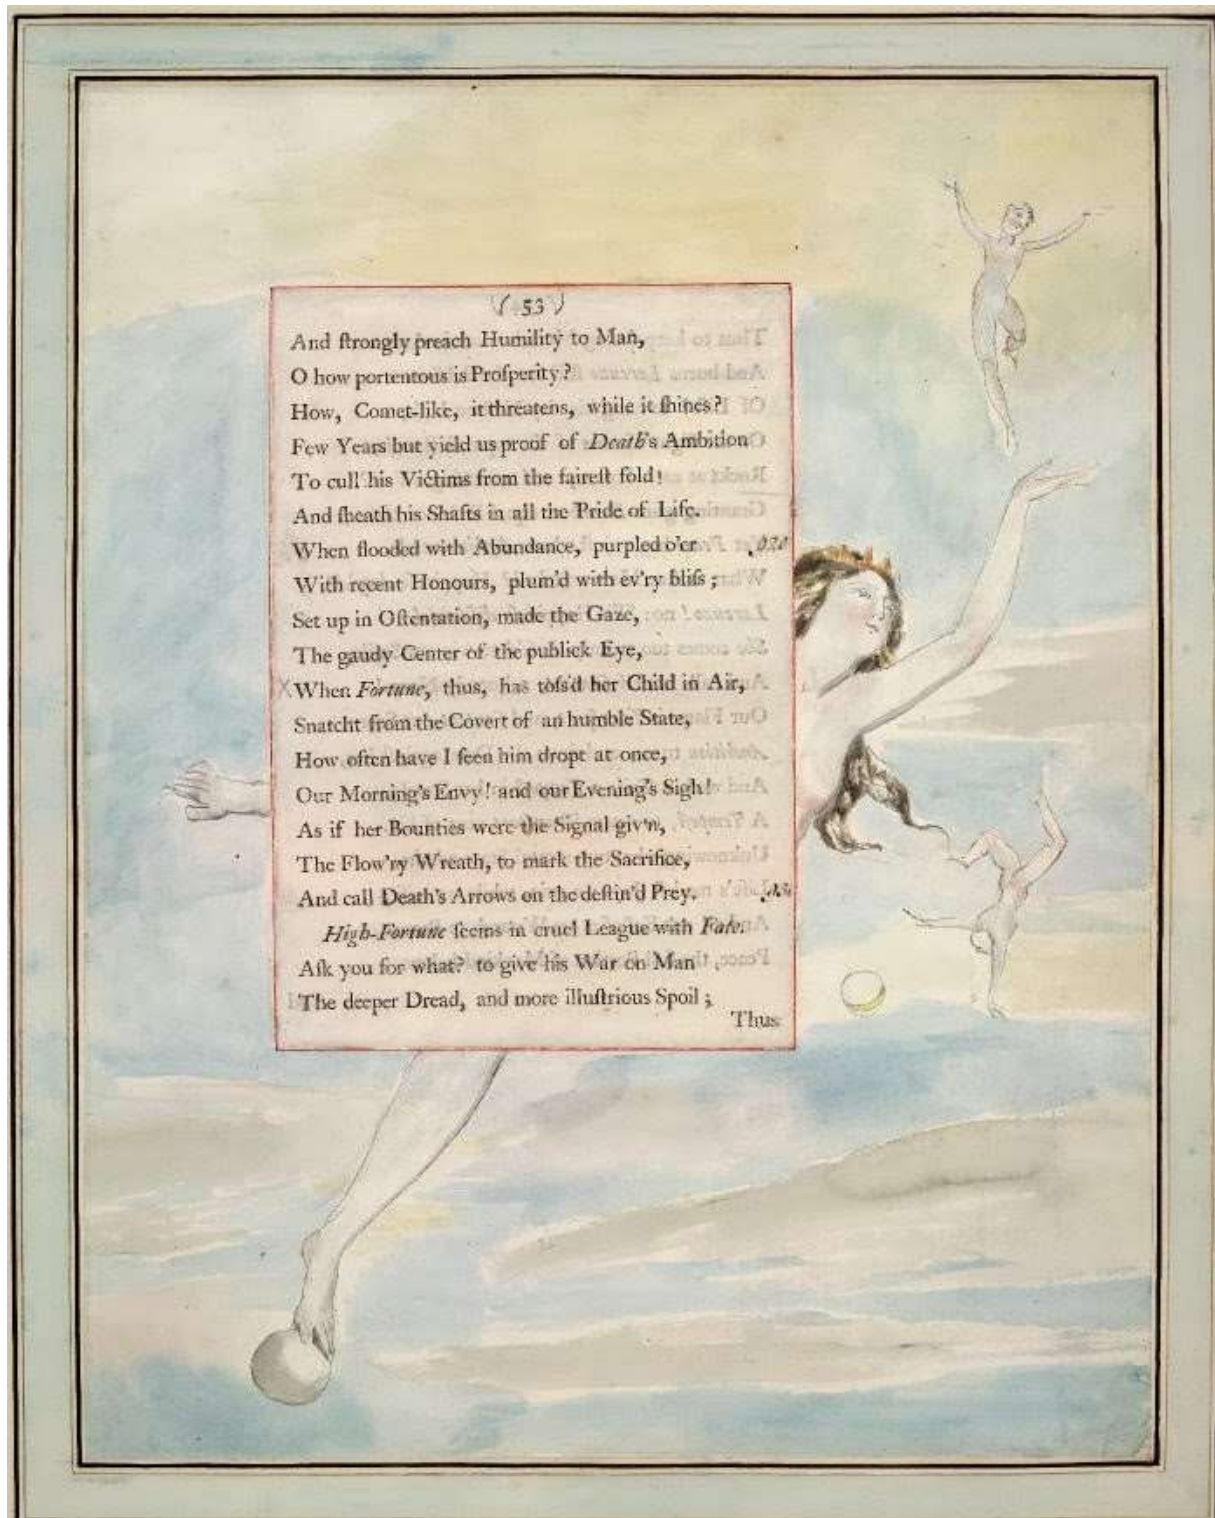 ( 53 )
And ſtrongly preach Humility to Man,
O how portentous is Proſperity?
How, Comet-like, it threatens, while it ſhines?
Few Years but yield us proof of Death's Ambition
To cull his Victims from the faireſt fold!
And ſheath his Shafts in all the Pride of Life.
When flooded with Abundance, purpled o'er
With recent Honours, plum'd with ev'ry bliſs;
Set up in Oſtentation, made the Gaze,
The gaudy Center of the publick Eye,
When Fortune, thus, has toſs'd her Child in Air,
Snatcht from the Covert of an humble State,
How often have I ſeen him dropt at once,
Our Morning's Envy! and our Evening's Sigh!
As if her Bounties were the Signal giv'n,
The Flow'ry Wreath, to mark the Sacrifice,
And call Death's Arrows on the deſtin'd Prey.
High-Fortune ſeems in cruel League with Fate.
Aſk you for what? to give his War on Man
The deeper Dread, and more illuſtrious Spoil;
Thus